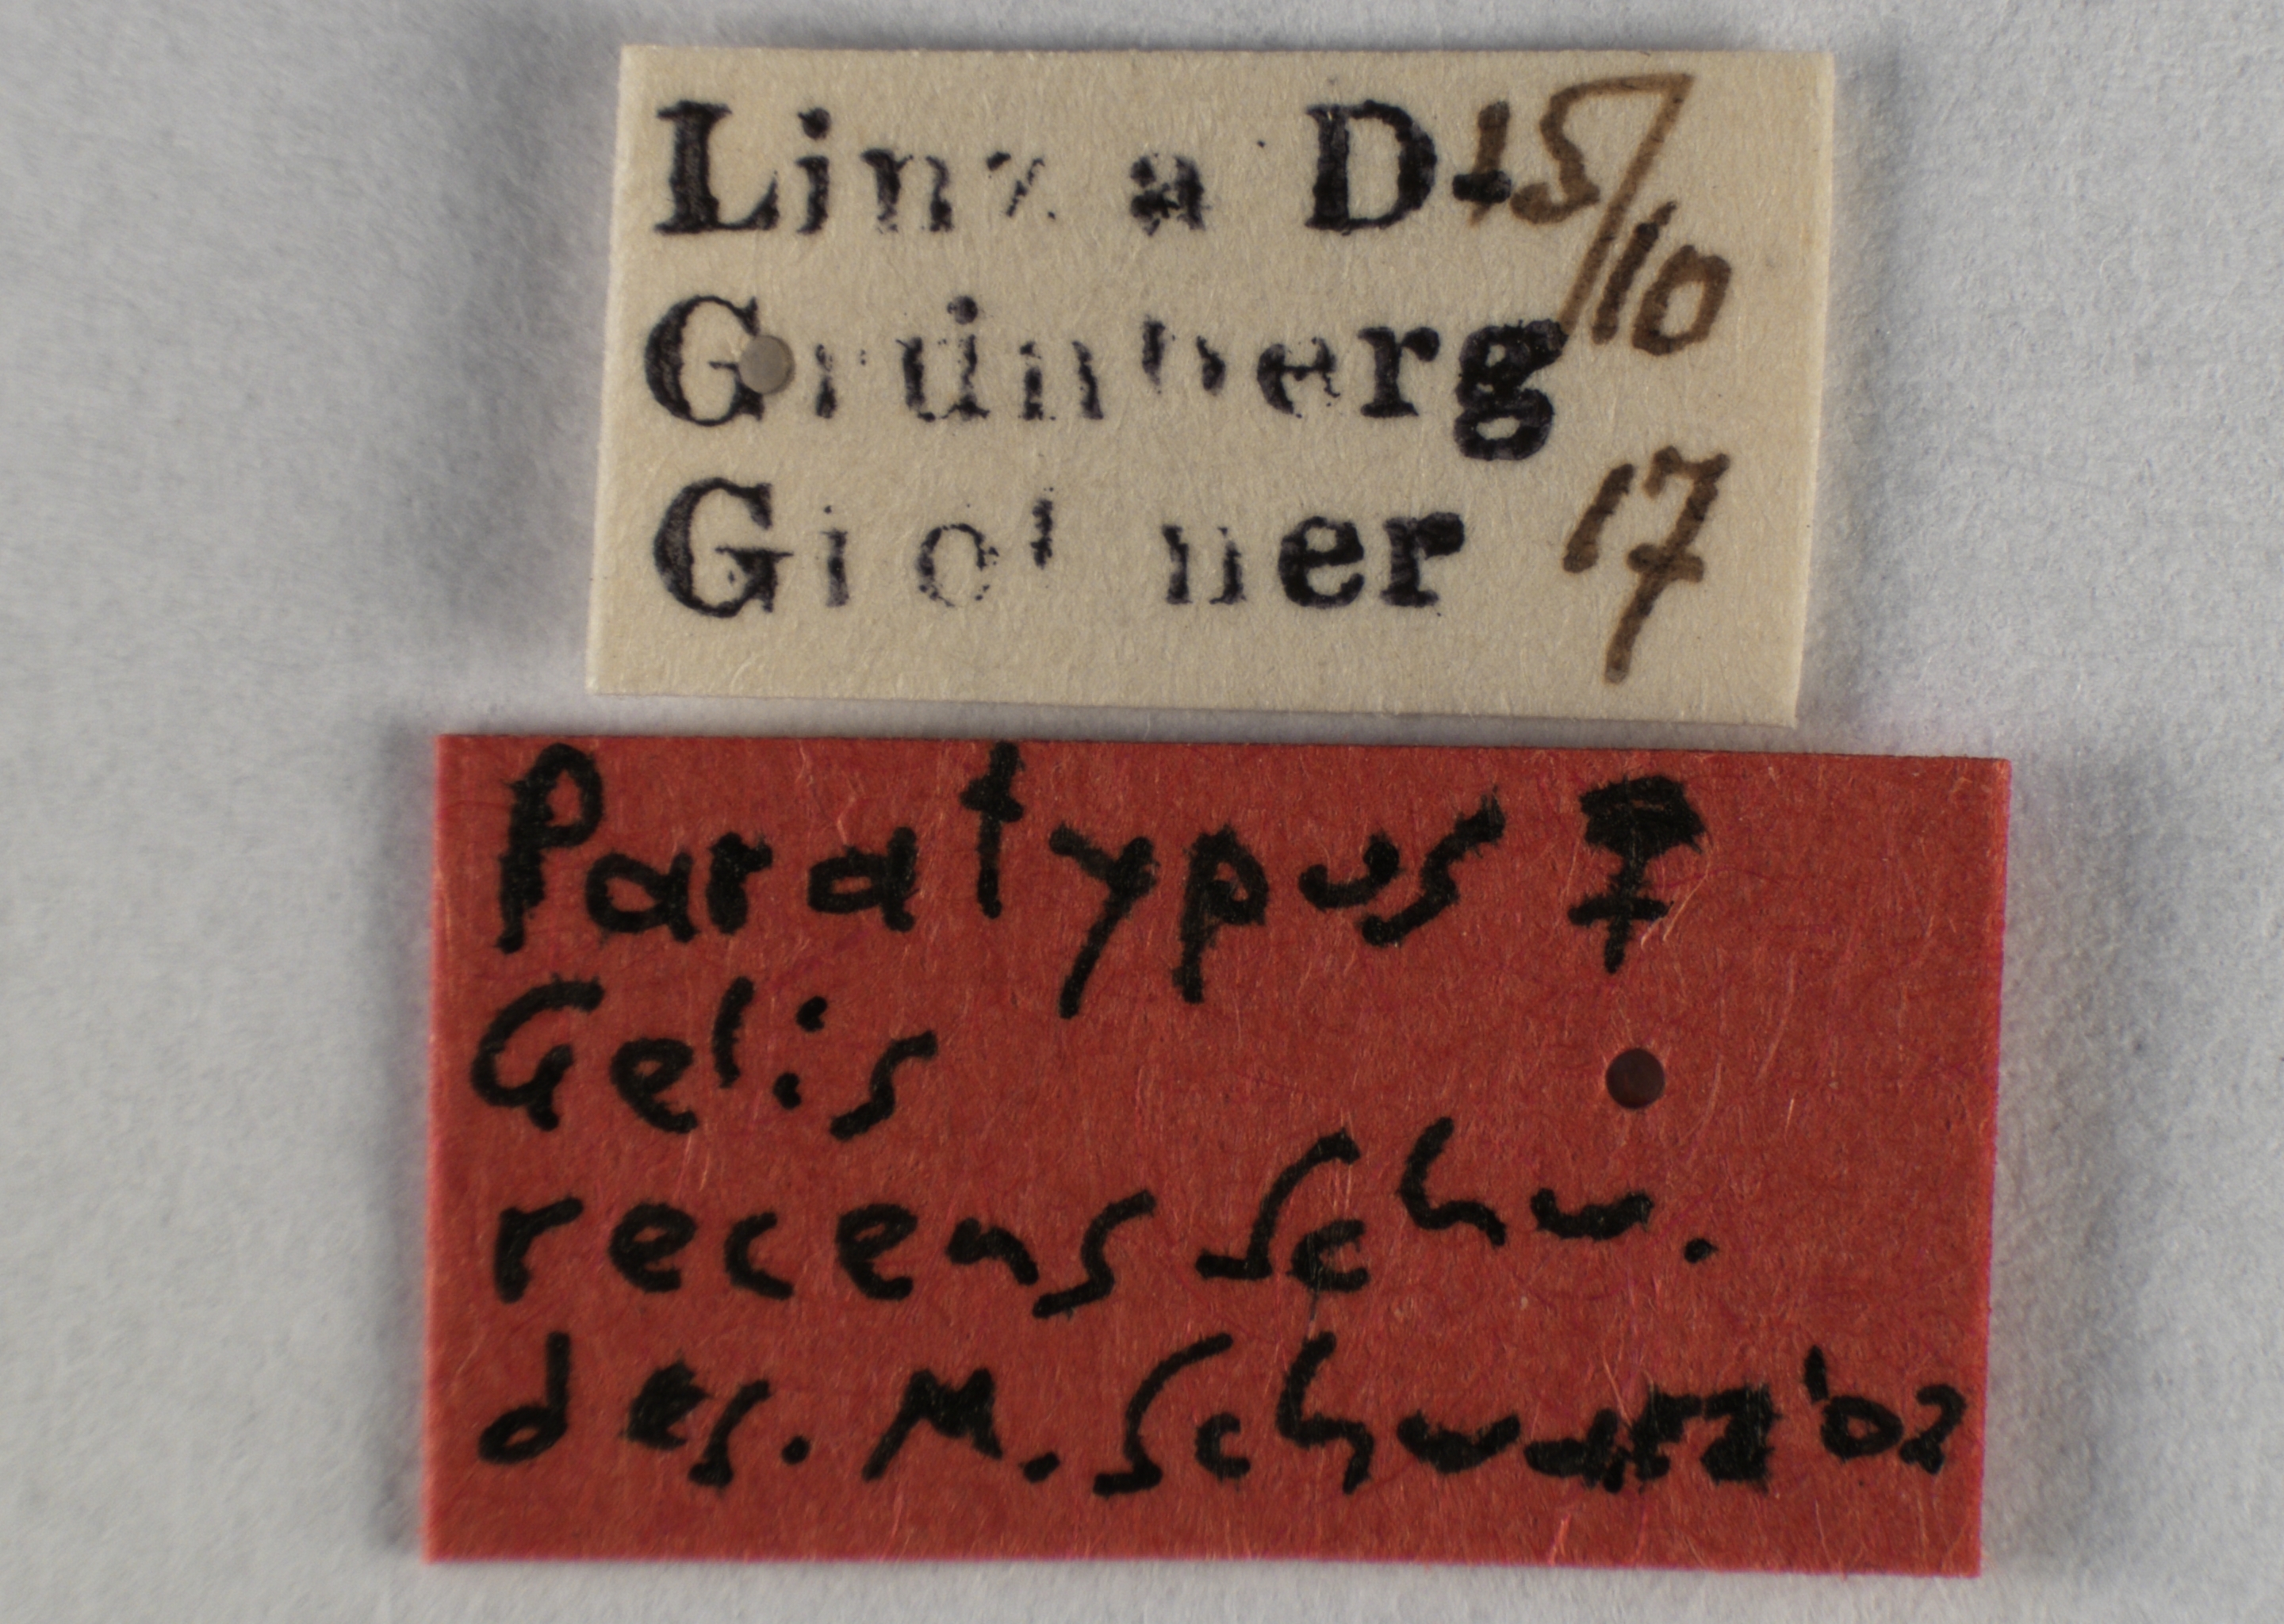 Linz a D. 15/10
Gründberg
17
Paratypus ♀
Gelis
recens Schw.
des. M. Schwarz '02